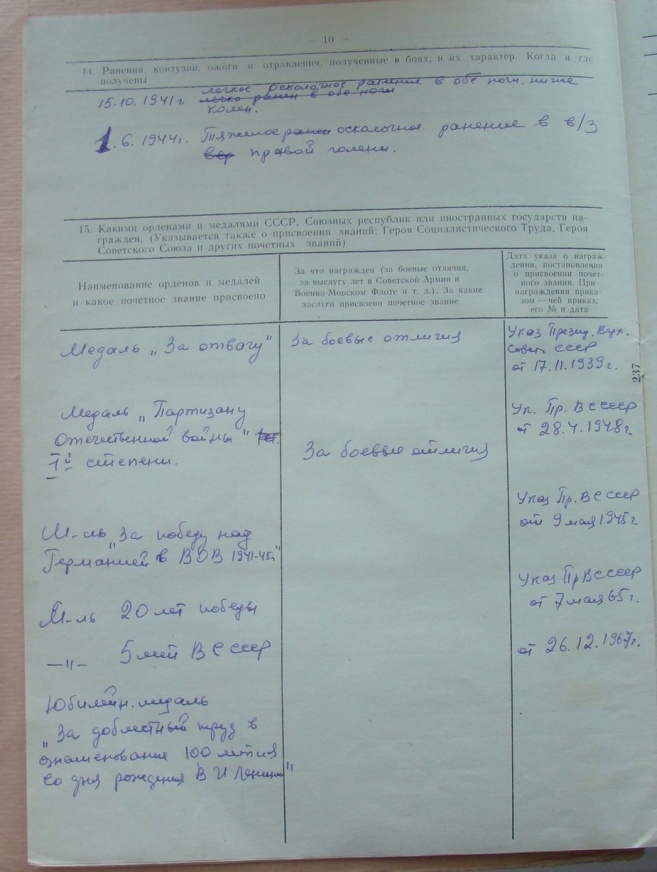 — 10 —
14. Ранения, контузии, ожоги и отравления, полученные в боях, и их характер. Когда и где
получены
легкое осколочное ранение в обе ноги, ниже
15.10.1941 г. легко ранен в обе ноги
колен.
1.6.1944 г. Тяжелое ранен осколочное ранение в в/3
вер правой голени.
15. Какими орденами и медалями СССР, Союзных республик или иностранных государств на-
гражден. (Указывается также о присвоении званий: Героя Социалистического Труда, Героя
Советского Союза и других почетных званий)
Наименование орденов и медалей
и какое почетное звание присвоено
За что награжден (за боевые отличия,
за выслугу лет в Советской Армии и
Военно-Морском Флоте и т. д.). За какие
заслуги присвоено почетное звание
Дата указа о награж-
дении, постановления
о присвоении почет-
ного звания. При
награждении прика-
зом — чей приказ,
его № и дата
Медаль „За отвагу"
За боевые отличия
Указ Презид 
Верх.
Совет СССР
от 17.11.1939 г.
Медаль „Партизану
Отечественной войны"
I й степени.
За боевые отличия
Ук. Пр. ВС СССР
от 28.4.1948 г.
М-ль „За победу над
Германией в ВОВ 1941-45г."
Указ Пр. ВС СССР
от 9 мая 1945 г.
М-ль 20 лет победы
Указ Пр ВС СССР
от 7 мая 65 г.
—„— 5 лет ВС СССР
от 26.12.1967 г.
Юбилейн. медаль
„За доблестный труд в
ознаменование 100 летия
со дня рождения В И Ленина"
237